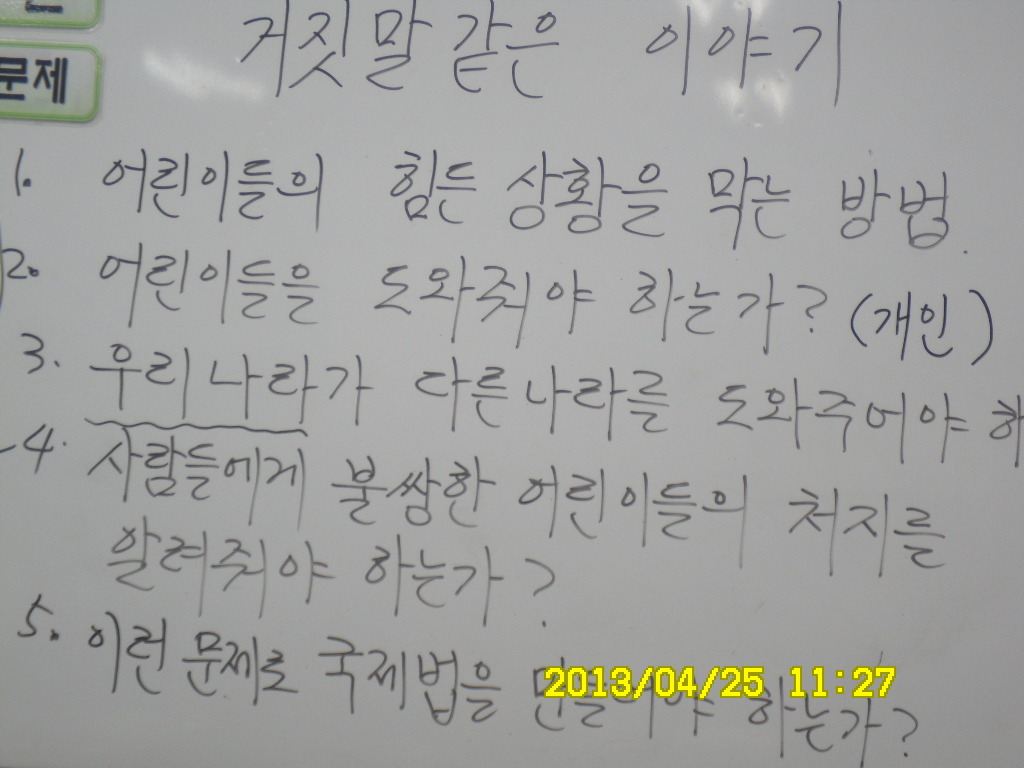 문제
거짓말 같은 이야기
1. 어린이들의 힘든 상황을 막는 방법.
2. 어린이들을 도와줘야 하는가? (개인)
3. 우리나라가 다른나라를 도와주어야 하
4. 사람들에게 불쌍한 어린이들의 처지를
알려줘야 하는가?
5. 이런 문제로 국제법을 만들어야 하는가?
2013/04/25 11:27